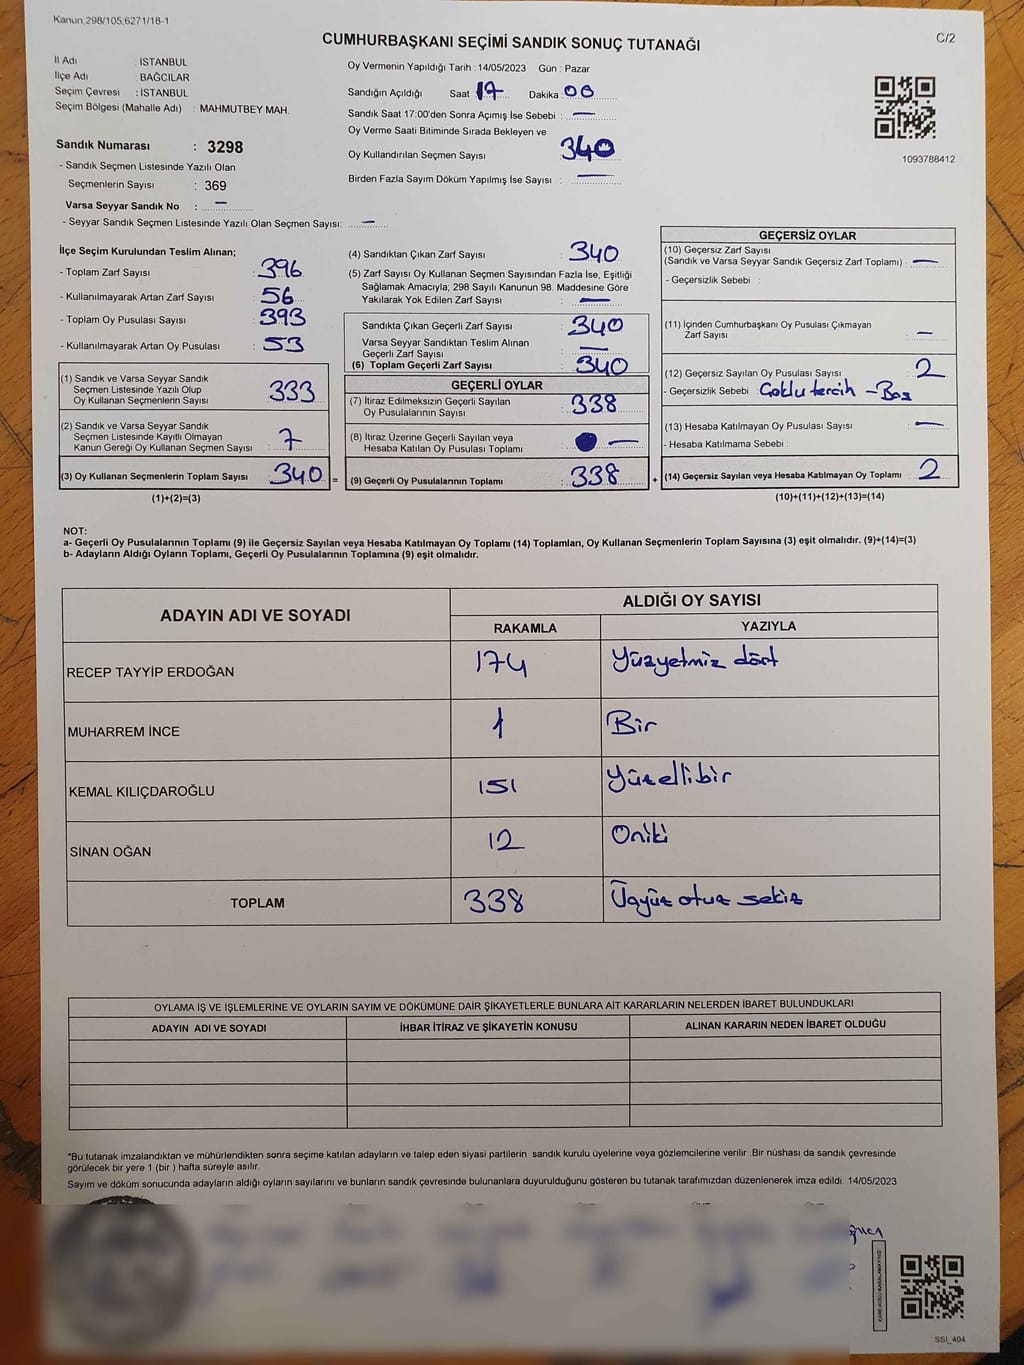 Kanun,298/105,6271/18-1
C/2
CUMHURBAŞKANI SEÇİMİ SANDIK SONUÇ TUTANAĞI
İl Adı : İSTANBUL
İlçe Adı : BAĞCILAR
Seçim Çevresi : İSTANBUL
Seçim Bölgesi (Mahalle Adı) : MAHMUTBEY MAH.
Sandık Numarası : 3298
- Sandık Seçmen Listesinde Yazılı Olan
Seçmenlerin Sayısı : 369
Varsa Seyyar Sandık No : —
- Seyyar Sandık Seçmen Listesinde Yazılı Olan Seçmen Sayısı: —
Oy Vermenin Yapıldığı Tarih : 14/05/2023 Gün : Pazar
Sandığın Açıldığı Saat 17 Dakika 00
Sandık Saat 17:00'den Sonra Açımış İse Sebebi : —
Oy Verme Saati Bitiminde Sırada Bekleyen ve
Oy Kullandırılan Seçmen Sayısı 340
Birden Fazla Sayım Döküm Yapılmış İse Sayısı : —
1093788412
İlçe Seçim Kurulundan Teslim Alınan;
- Toplam Zarf Sayısı : 396
- Kullanılmayarak Artan Zarf Sayısı : 56
- Toplam Oy Pusulası Sayısı : 393
- Kullanılmayarak Artan Oy Pusulası : 53
(1) Sandık ve Varsa Seyyar Sandık
Seçmen Listesinde Yazılı Olup
Oy Kullanan Seçmenlerin Sayısı : 333
(2) Sandık ve Varsa Seyyar Sandık
Seçmen Listesinde Kayıtlı Olmayan
Kanun Gereği Oy Kullanan Seçmen Sayısı : 7
(3) Oy Kullanan Seçmenlerin Toplam Sayısı : 340 =
(1)+(2)=(3)
(4) Sandıktan Çıkan Zarf Sayısı : 340
(5) Zarf Sayısı Oy Kullanan Seçmen Sayısından Fazla İse, Eşitliği
Sağlamak Amacıyla; 298 Sayılı Kanunun 98. Maddesine Göre
Yakılarak Yok Edilen Zarf Sayısı : —
Sandıkta Çıkan Geçerli Zarf Sayısı : 340
Varsa Seyyar Sandıktan Teslim Alınan
Geçerli Zarf Sayısı : —
(6) Toplam Geçerli Zarf Sayısı : 340
GEÇERLİ OYLAR
(7) İtiraz Edilmeksizin Geçerli Sayılan
Oy Pusulalarının Sayısı : 338
(8) İtiraz Üzerine Geçerli Sayılan veya
Hesaba Katılan Oy Pusulası Toplamı : —
(9) Geçerli Oy Pusulalarının Toplamı : 338 +
GEÇERSİZ OYLAR
(10) Geçersiz Zarf Sayısı
(Sandık ve Varsa Seyyar Sandık Geçersiz Zarf Toplamı) : —
- Geçersizlik Sebebi :
(11) İçinden Cumhurbaşkanı Oy Pusulası Çıkmayan
Zarf Sayısı : —
(12) Geçersiz Sayılan Oy Pusulası Sayısı : 2
- Geçersizlik Sebebi : Çoklu tercih - Boş
(13) Hesaba Katılmayan Oy Pusulası Sayısı : —
- Hesaba Katılmama Sebebi :
(14) Geçersiz Sayılan veya Hesaba Katılmayan Oy Toplamı : 2
(10)+(11)+(12)+(13)=(14)
NOT:
a- Geçerli Oy Pusulalarının Toplamı (9) ile Geçersiz Sayılan veya Hesaba Katılmayan Oy Toplamı (14) Toplamları, Oy Kullanan Seçmenlerin Toplam Sayısına (3) eşit olmalıdır. (9)+(14)=(3)
b- Adayların Aldığı Oyların Toplamı, Geçerli Oy Pusulalarının Toplamına (9) eşit olmalıdır.
ADAYIN ADI VE SOYADI ALDIĞI OY SAYISI
RAKAMLA YAZIYLA
RECEP TAYYİP ERDOĞAN 174 Yüzyetmiz dört
MUHARREM İNCE 1 Bir
KEMAL KILIÇDAROĞLU 151 Yüzellibir
SİNAN OĞAN 12 Oniki
TOPLAM 338 Üçyüz otuz sekiz
OYLAMA İŞ VE İŞLEMLERİNE VE OYLARIN SAYIM VE DÖKÜMÜNE DAİR ŞİKAYETLERLE BUNLARA AİT KARARLARIN NELERDEN İBARET BULUNDUKLARI
ADAYIN ADI VE SOYADI İHBAR İTİRAZ VE ŞİKAYETİN KONUSU ALINAN KARARIN NEDEN İBARET OLDUĞU
*Bu tutanak imzalandıktan ve mühürlendikten sonra seçime katılan adayların ve talep eden siyasi partilerin sandık kurulu üyelerine veya gözlemcilerine verilir .Bir nüshası da sandık çevresinde
görülecek bir yere 1 (bir ) hafta süreyle asılır.
Sayım ve döküm sonucunda adayların aldığı oyların sayılarını ve bunların sandık çevresinde bulunanlara duyurulduğunu gösteren bu tutanak tarafımızdan düzenlenerek imza edildi. 14/05/2023
KARE KODU KARALAMAYINIZ!
SSI_404